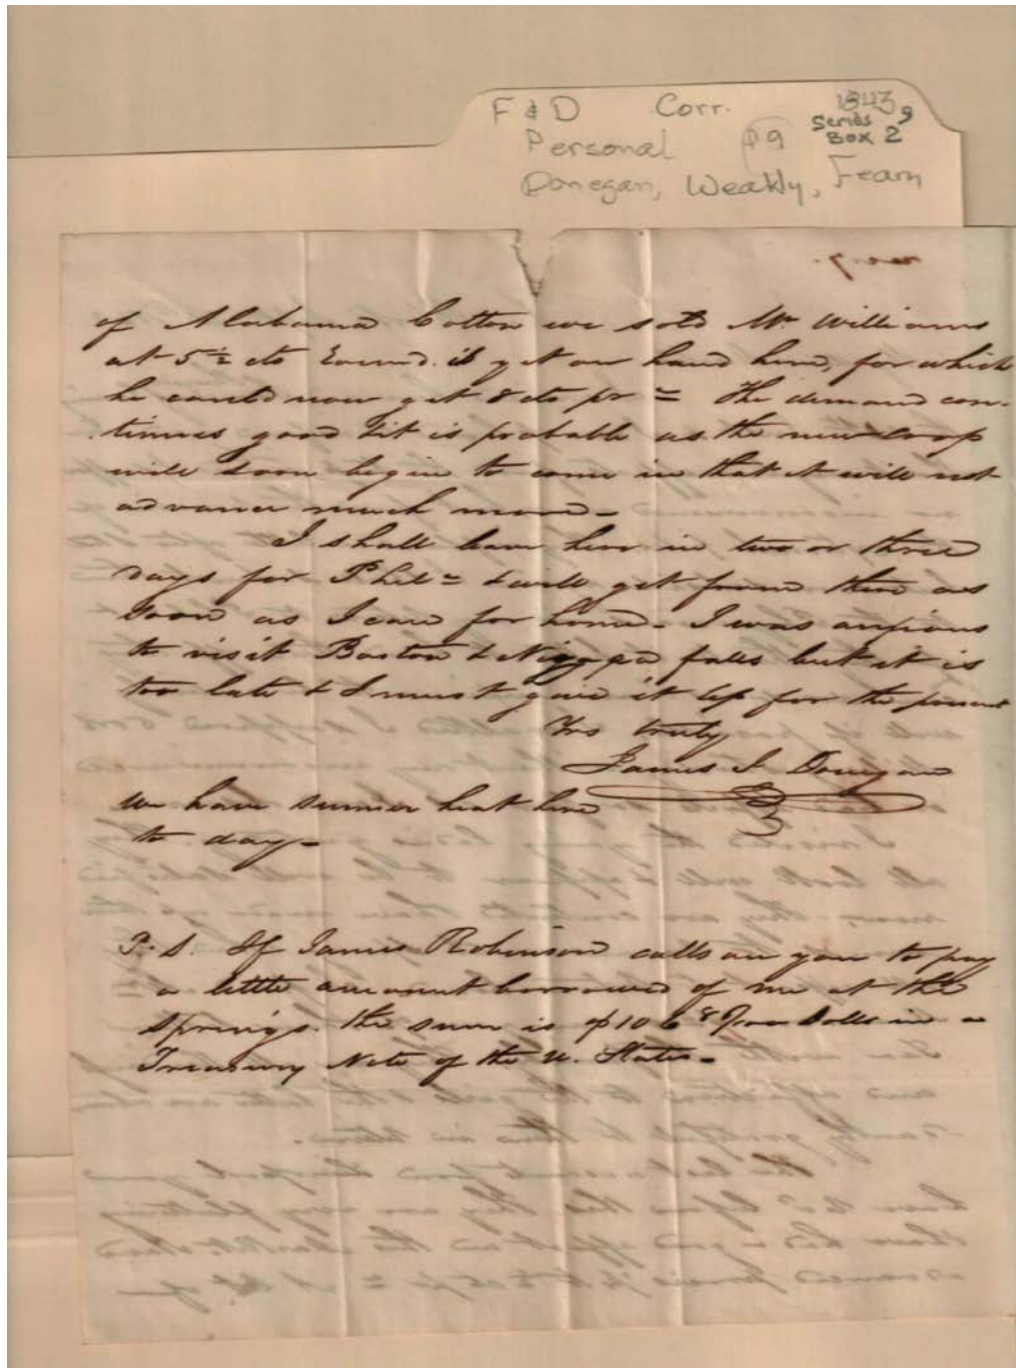 F & D Corr. 1843
Series 9
Personal Box 2
Donegan, Weakly, Fearn
of Alabama Cotton we sold Mr Williams
at 5½ cts round. is yet on hand here, for which
he could now get 8 cts pr = the demand con-
tinues good & it is probable as the new crop
will soon begin to come in that it will not
advance much more -
I shall leave here in two or three
days for Phila = & will get from there as
soon as I can for home - I was anxious
to visit Boston & Niagara falls but it is
too late & I must give it up for the present
Yrs truly
James J. Donegan
We have summer heat here
to day -
P. S. If James Robinson calls on you to pay
a little amount borrowed of me at the
Springs. the sum is $106 in a
Treasury Note of the U. States -